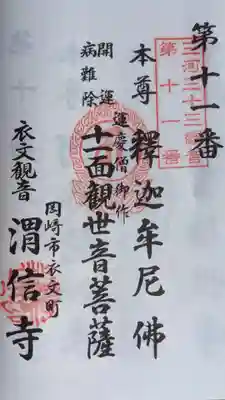 第十一番
三河三十三観音
第十一番
本尊 釋迦牟尼佛
運慶僧御作
十一面觀世音菩薩
開運
病難除
岡崎市衣文町
衣文觀音 渭信寺